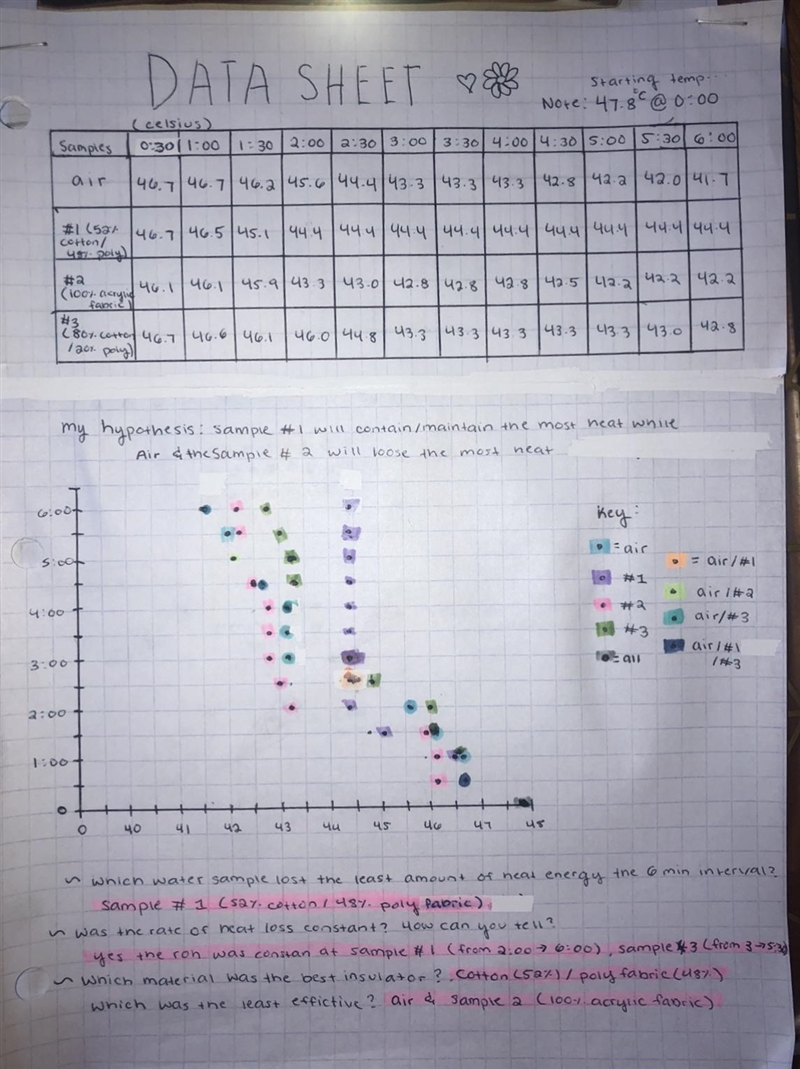 DATA SHEET
Starting temp...
Note: 47.8°C @ 0:00
(celsius)
Samples 0:30 1:00 1:30 2:00 2:30 3:00 3:30 4:00 4:30 5:00 5:30 6:00
air 46.7 46.7 46.2 45.6 44.4 43.3 43.3 43.3 42.8 42.2 42.0 41.7
#1 (52% cotton/ 48% poly) 46.7 46.5 45.1 44.4 44.4 44.4 44.4 44.4 44.4 44.4 44.4 44.4
#2 (100% acrylic fabric) 46.1 46.1 45.9 43.3 43.0 42.8 42.8 42.8 42.5 42.2 42.2 42.2
#3 (80% cotton /20% poly) 46.7 46.6 46.1 46.0 44.8 43.3 43.3 43.3 43.3 43.3 43.0 42.8
my hypothesis: sample #1 will contain/maintain the most heat while
Air & the Sample # 2 will loose the most heat
Key:
= air
#1
#2
#3
= all
= air/#1
air/#2
air/#3
air/#1
/#3
6:00
5:00
4:00
3:00
2:00
1:00
0
0 40 41 42 43 44 45 46 47 48
~ Which water sample lost the least amount of heat energy the 6 min interval?
Sample # 1 (52% cotton/48% poly fabric)
~ Was the rate of heat loss constant? How can you tell?
yes the roh was constan at sample #1 (from 2:00→6:00), sample #3 (from 3→5:30)
~ Which material was the best insulator? cotton (52%)/poly fabric (48%)
Which was the least effictive? air & sample 2 (100% acrylic fabric)